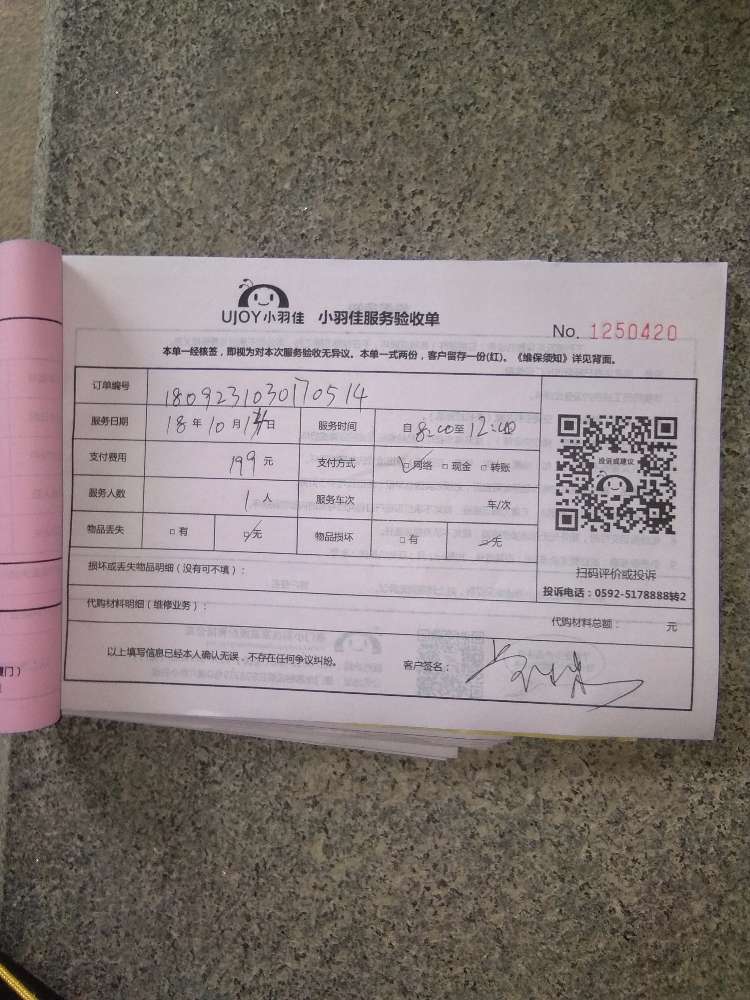 UJOY小羽佳 小羽佳服务验收单
No. 1250420
本单一经核签，即视为对本次服务验收无异议。本单一式两份，客户留存一份(红)。《维保须知》详见背面。
订单编号 1809231030170514
服务日期 18年10月1日 服务时间 自8:00至12:00
支付费用 199元 支付方式 网络 现金 转账
投诉或建议
服务人数 1人 服务车次 车/次
物品丢失 有 无 物品损坏 有 无
扫码评价或投诉
损坏或丢失物品明细（没有可不填）：
投诉电话：0592-5178888转2
代购材料明细（维修业务）：
代购材料总额： 元
以上填写信息已经本人确认无误，不存在任何争议纠纷。 客户签名：
门）